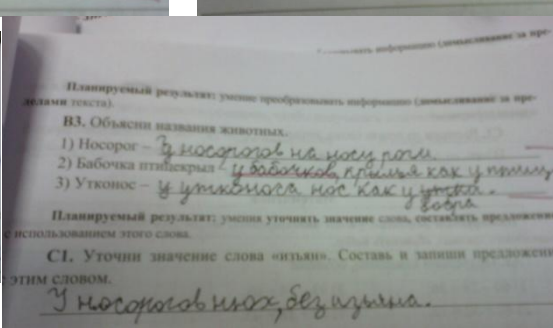 Планируемый результат: умение преобразовывать информацию (домысливание за пре-
делами текста).
В3. Объясни названия животных.
1) Носорог – У носорогов на носу роги.
2) Бабочка птицекрыл – у бабочков, крылья как у птиц
3) Утконос – у утконоса нос как у утка.
Планируемый результат: умения уточнять значение слова, составлять предложени
с использованием этого слова.
С1. Уточни значение слова «изъян». Составь и запиши предложени
с этим словом.
У носорогов нюх, без изьяна.